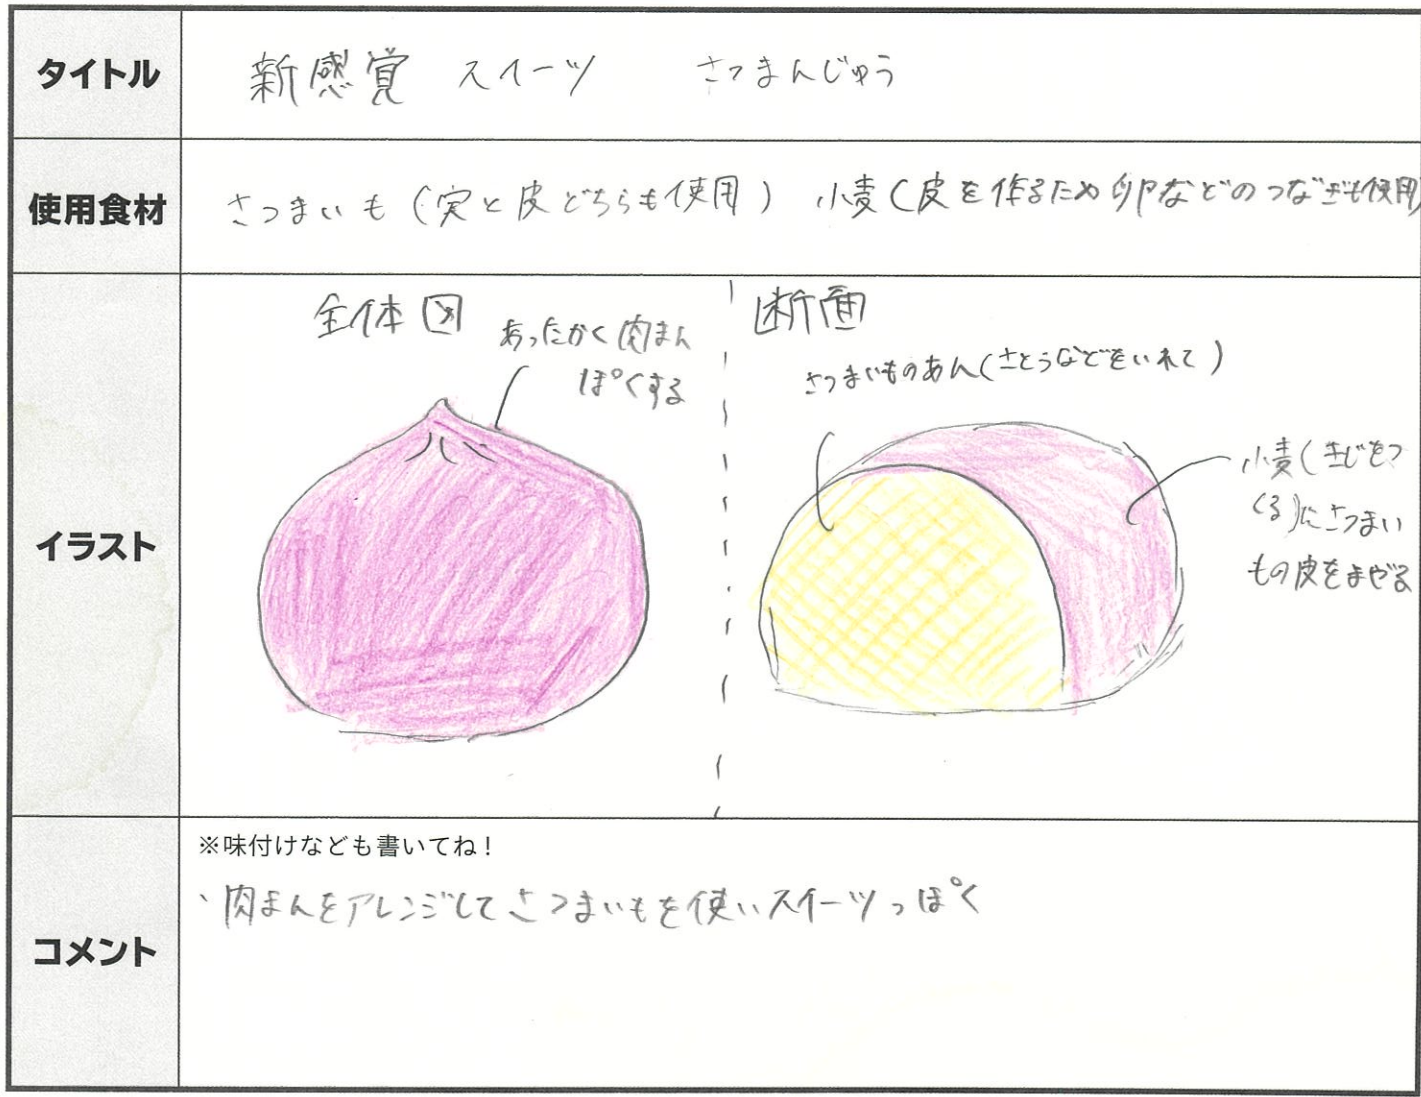 タイトル
新感覚 スイーツ さつまんじゅう
使用食材
さつまいも（実と皮どちらも使用） 小麦（皮を作るため卵などのつなぎも使用）
イラスト
全体図
あったかく肉まん
ぽくする
断面
さつまいものあん（さとうなどをいれて）
小麦（きじをつ
くる）にさつまい
もの皮をまぜる
コメント
※味付けなども書いてね！
・肉まんをアレンジしてさつまいもを使いスイーツっぽく